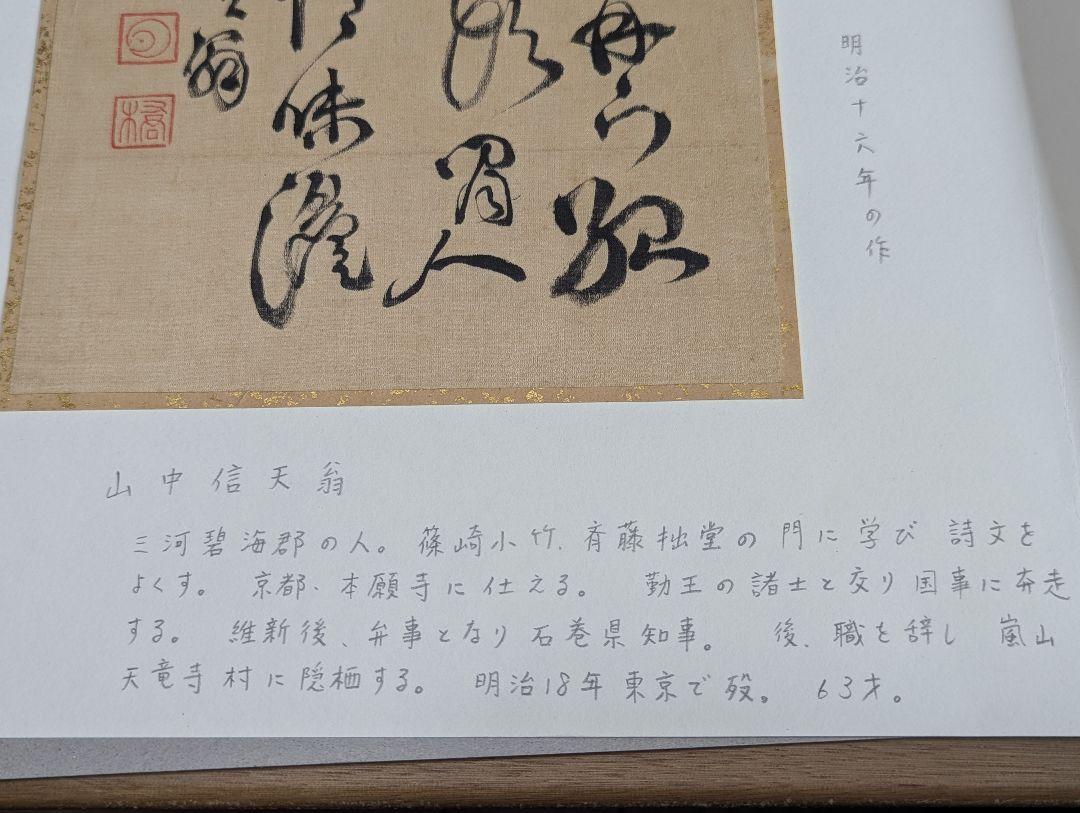 明治十六年の作
人
味
翁
山中信天翁
三河碧海郡の人。 篠崎小竹、斉藤拙堂の門に学び 詩文を
よくす。 京都、本願寺に仕える。 勤王の諸士と交り国事に奔走
する。 維新後、弁事となり石巻県知事。 後、職を辞し 嵐山
天竜寺村に隠栖する。 明治18年東京で歿。 63才。